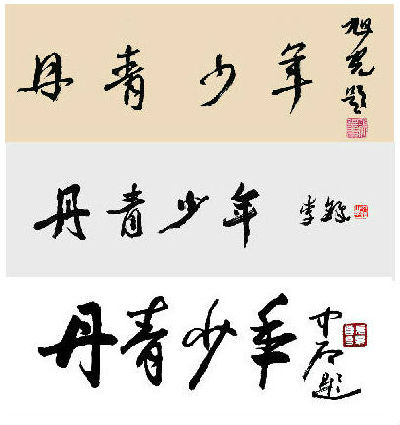 丹青少年 旭光题
丹青少年 李铎
丹青少年 中石题